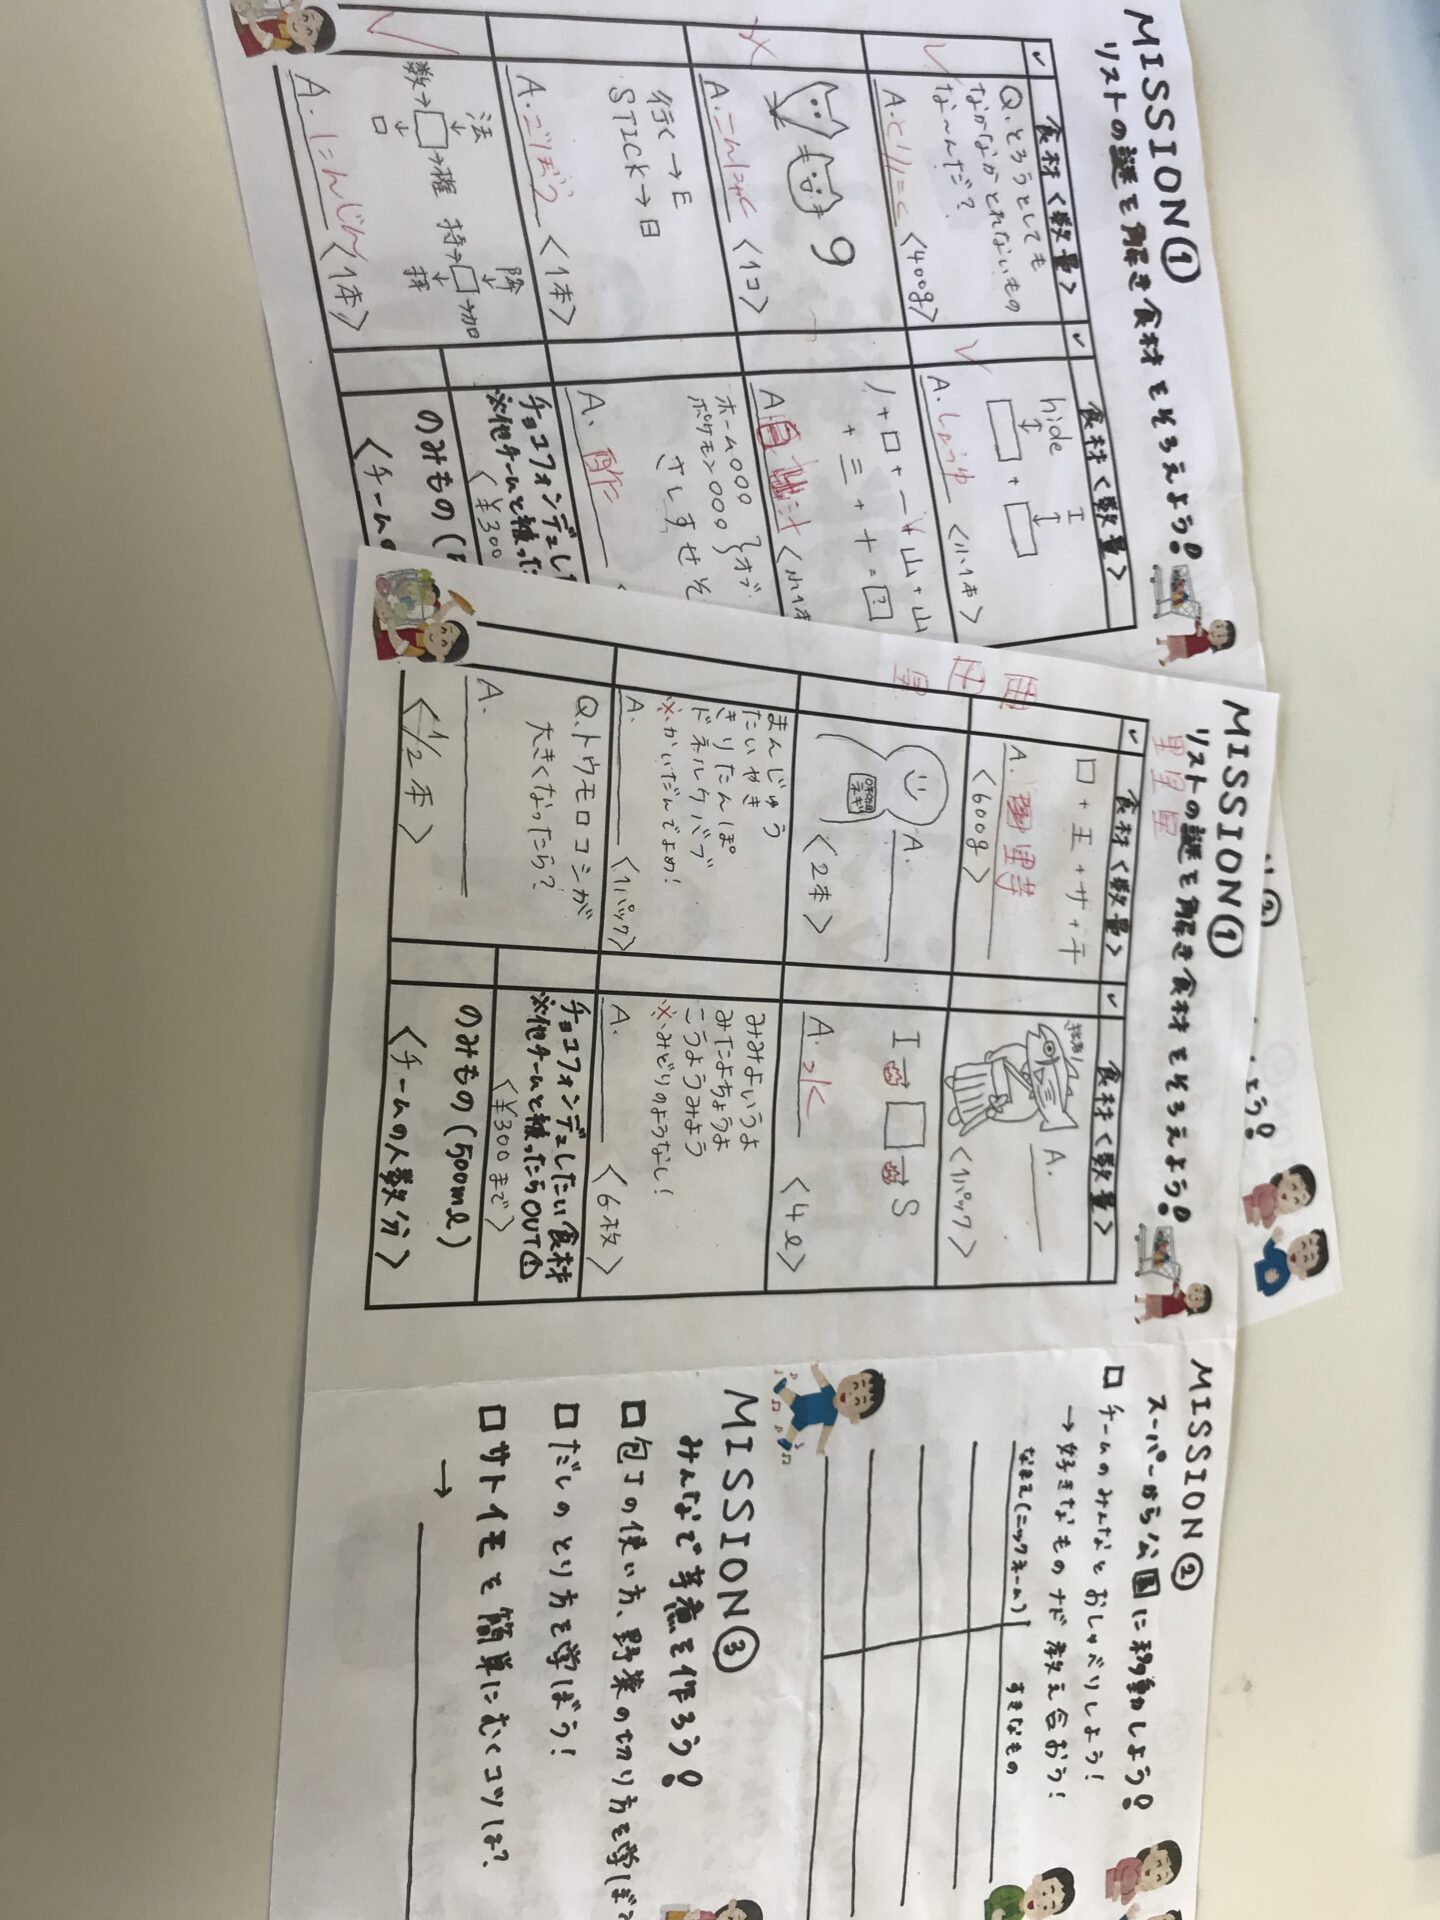 MISSION①
リストの謎を解き食材をそろえよう!
✓
食材<数量>
✓
食材<数量>
Q.とろうとしても
なかなかとれないもの
な〜んだ?
A.とりにく
<400g>
hide
↕
□
+
エ
↕
□
A.しょうゆ
<小1本>
9
A.こんにゃく
<1コ>
+
山+山
+
三
+
十
=
?
A.
<小1本
行く→E
STICK→日
A.ごぼう
<1本>
ホーム○○○
ポケモン○○○
}オブ
さしすせそ
A.酢
法
↓
数→□→権
↓
口
降
↓
持→□→加
↓
A.にんじん
<1本>
チョコフォンデュした
※他チームと被った
<¥300
のみもの(
<チームの
MISSION①
リストの謎を解き食材をそろえよう!
✓
食材<数量>
✓
食材<数量>
里里里
□+王+サ+干
A.里芋
<600g>
A.
<1パック>
ネギ
A.
<2本>
I→□→S
A.水
<4ℓ>
まんじゅう
たいやき
きりたんぽ
ドネルケバブ
※かいだんでよめ!
A.
<1パック>
みみよいうよ
みたよちょうよ
こうようみよう
※みどりのようなし!
A.
<6枚>
Q.トウモロコシが
大きくなったら?
A.
<1/2本>
チョコフォンデュしたい食材
※他チームと被ったらOUT
<¥300まで>
のみもの(500mℓ)
<チームの人数分>
②
よう!
MISSION②
スーパーから公園に移動しよう!
□チームのみんなとおしゃべりしよう!
→好きなものナド教え合おう!
なまえ(ニックネーム)
すきなもの
MISSION③
みんなで芋煮を作ろう!
□包丁の使い方、野菜の切り方を学ぼう
□だしのとり方を学ぼう!
□サトイモを簡単にむくコツは?
→